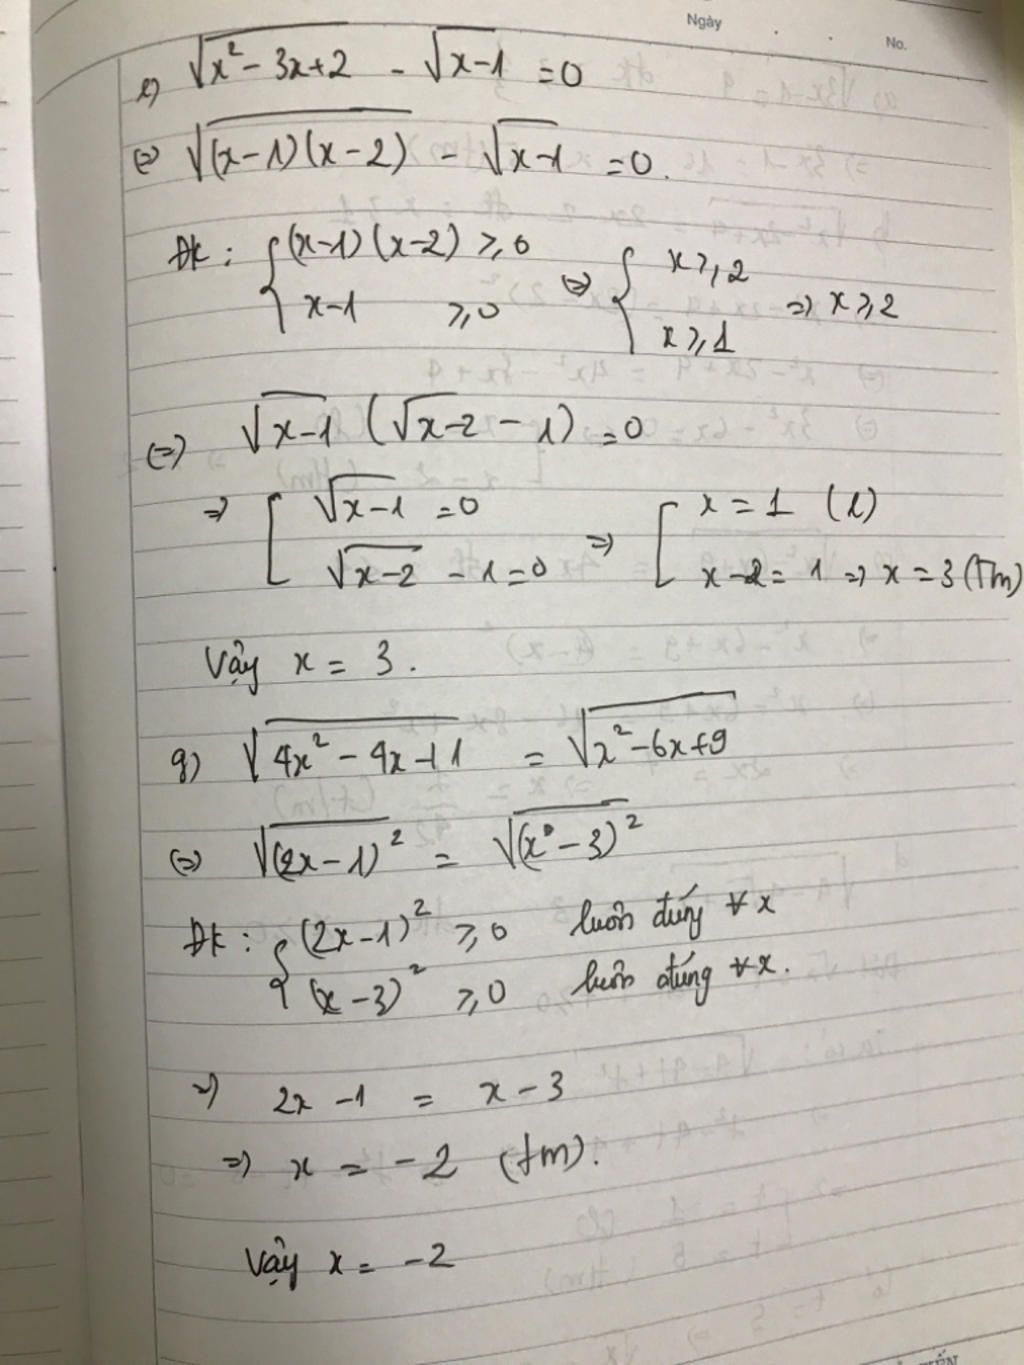 Ngày
No.
e) √(x² - 3x + 2) - √(x-1) = 0
(=) √((x-1)(x-2)) - √(x-1) = 0.
Đk : { (x-1)(x-2) ⩾ 0 (=) { x ⩾ 2
x-1 ⩾ 0 x ⩾ 1 => x ⩾ 2
(=) √(x-1) (√(x-2) - 1) = 0
=> [ √(x-1) = 0 => [ x = 1 (l)
√(x-2) - 1 = 0 x-2 = 1 => x = 3 (Tm)
Vậy x = 3.
g) √(4x² - 4x + 1) = √(x² - 6x + 9)
(=) √((2x-1)²) = √((x - 3)²)
Đk : { (2x-1)² ⩾ 0 luôn đúng ∀x
(x-3)² ⩾ 0 luôn đúng ∀x.
=> 2x - 1 = x - 3
=> x = -2 (tm).
Vậy x = -2